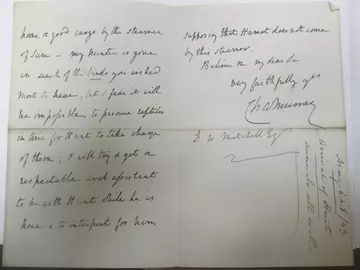 home a good cargo by the steamer
of June – my hunter is gone
in search of the birds you wished
most to have, but I fear it will
be impossible to procure reptiles
in time for Hunt to take charge
of them; I will try & get a
respectable Arab assistant
to be with Hunt while he is
here & to interpret for him
supposing that Hamet does not come
by this steamer.
Believe me my dear Sir
very faithfully yrs
Ch A Murray
D W Mitchell Esq
May
Arrival of Hunt